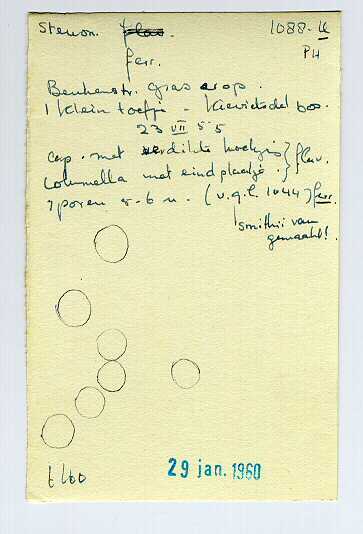 Stemon. flav. 1088-k
PH
ferr.
Beukenstr. gras erop.
1 klein toefje - Kievitsdel bos.
23 VII 55
cap. met verdikte hoekjes } flav.
Columella met eindplaatje. }
sporen 5-6 u. (v.g.l. 1044) ferr
smithii van
gemaakt!
6/60
29 jan. 1960